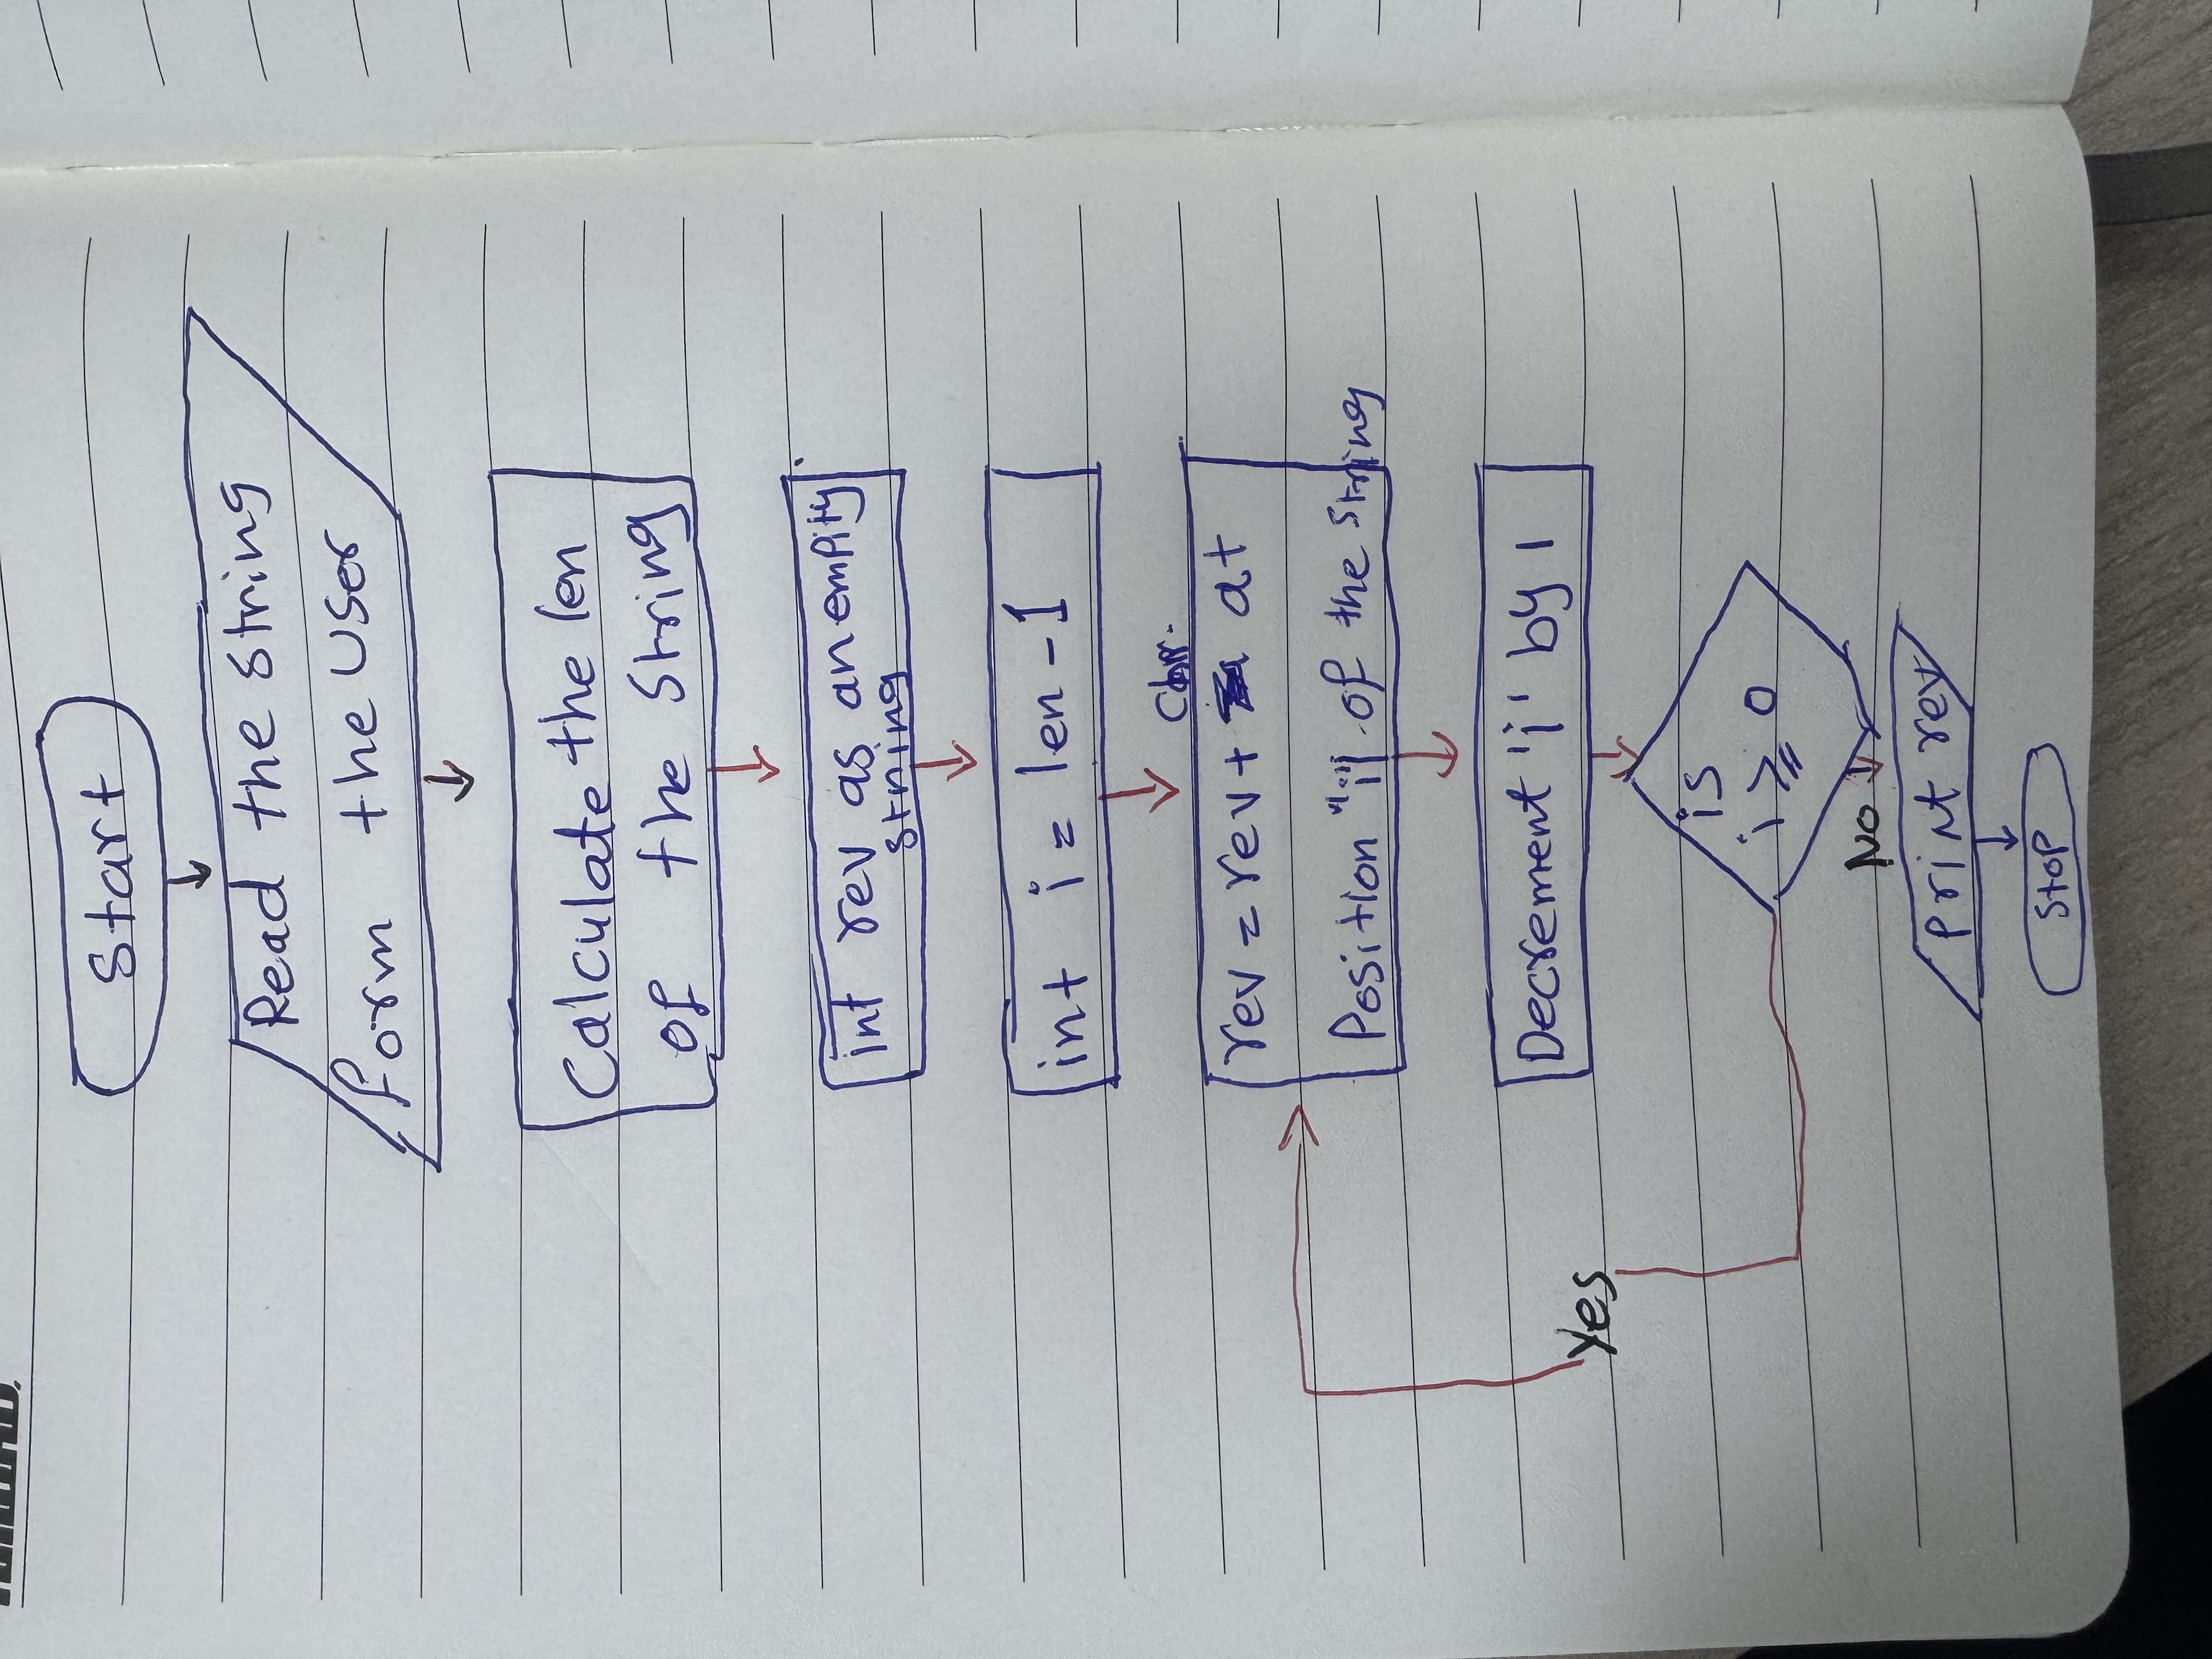 Start
Read the string
form the User
Calculate the len
of the String
int rev as an empity
string
int i = len - 1
rev = rev + at
Position "i" of the string
Decrement 'i' by 1
Yes
is
i ≥ 0
No
Print rev
Stop